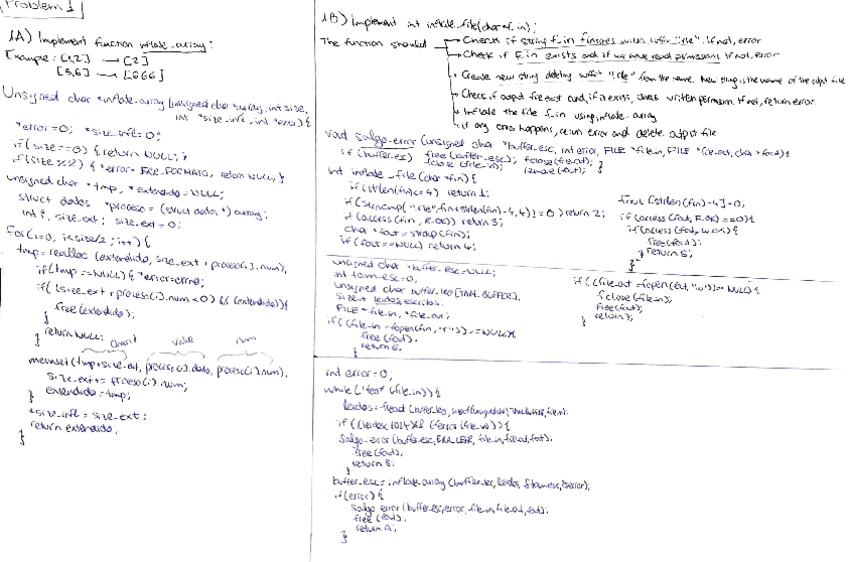 Problem 1
1A) Implement function inflate_array:
Example: [1,2] → [2]
[3,6] → [666]
Unsigned char *inflate_array (unsigned char *array, int size,
int *size_infl, int *error) {
*error=0; *size_infl=0;
if (size==0) { return NULL; }
if (size%2) { *error= ERR_FORMATO, return NULL; }
unsigned char *tmp, *extendido=NULL;
struct datos *proceso = (struct datos *) array;
int i, size_ext; size_ext=0;
for (i=0; i<size/2; i++) {
tmp=realloc (extendido, size_ext + proceso[i].num);
if (tmp==NULL) { *error=errno;
if ((size_ext + proceso[i].num<0) && (extendido)) {
free (extendido);
}
return NULL;
}
value num
memset (tmp+size_ext, proceso[i].dato, proceso[i].num);
size_ext+= proceso[i].num;
extendido=tmp;
}
*size_infl = size_ext;
return extendido;
}
1B) Implement int inflate_file(char *f_in);
The function should
Check if string f_in finishes with suffix ".rle". If not, error
Check if f_in exists and if we have read permissions, if not, error
Create new string deleting suffix ".rle" from the name. New string is the name of the output file
Check if output file exist and, if it exists, check written permission. If not, return error
Inflate the file f_in using inflate_array
if any error happens, return error and delete output file
void salgo_error (unsigned char *buffer_esc, int error, FILE *file_in, FILE *file_out, char *fout) {
if (buffer_esc) free (buffer_esc); fclose (file_out);
fclose (file_in); remove (fout); }
int inflate_file (char *fin) {
if (strlen(fin)<=4) return 1;
if (strncmp (".rle", fin+strlen(fin)-4,4)!=0) return 2;
if (access (fin, R_OK)) return 3;
char *fout=strdup(fin);
if (fout==NULL) return 4;
fout [strlen(fin)-4]=0;
if (access (fout, F_OK)==0) {
if (access (fout, W_OK)) {
free(fout);
return 5;
}
}
unsigned char *buffer_esc=NULL;
int tam_esc=0;
unsigned char buffer_leo [TAM_BUFFER];
size_t leidos, escritos;
FILE *file_in, *file_out;
if ((file_in =fopen(fin, "r"))==NULL) {
free (fout);
return 6;
}
if ((file_out =fopen(fout, "w"))== NULL) {
fclose (file_in);
free(fout);
return 7;
}
int error=0;
while (!feof (file_in)) {
if ((leidos<1024) && (ferror (file_in))) {
salgo_error (buffer_esc, ERR_LEER, file_in, file_out, fout);
free (fout);
return 8;
}
buffer_esc= inflate_array (buffer_leo, leidos, &tam_esc, &error);
if (error) {
salgo_error (buffer_esc, error, file_in, file_out, fout);
free (fout);
return 9;
}